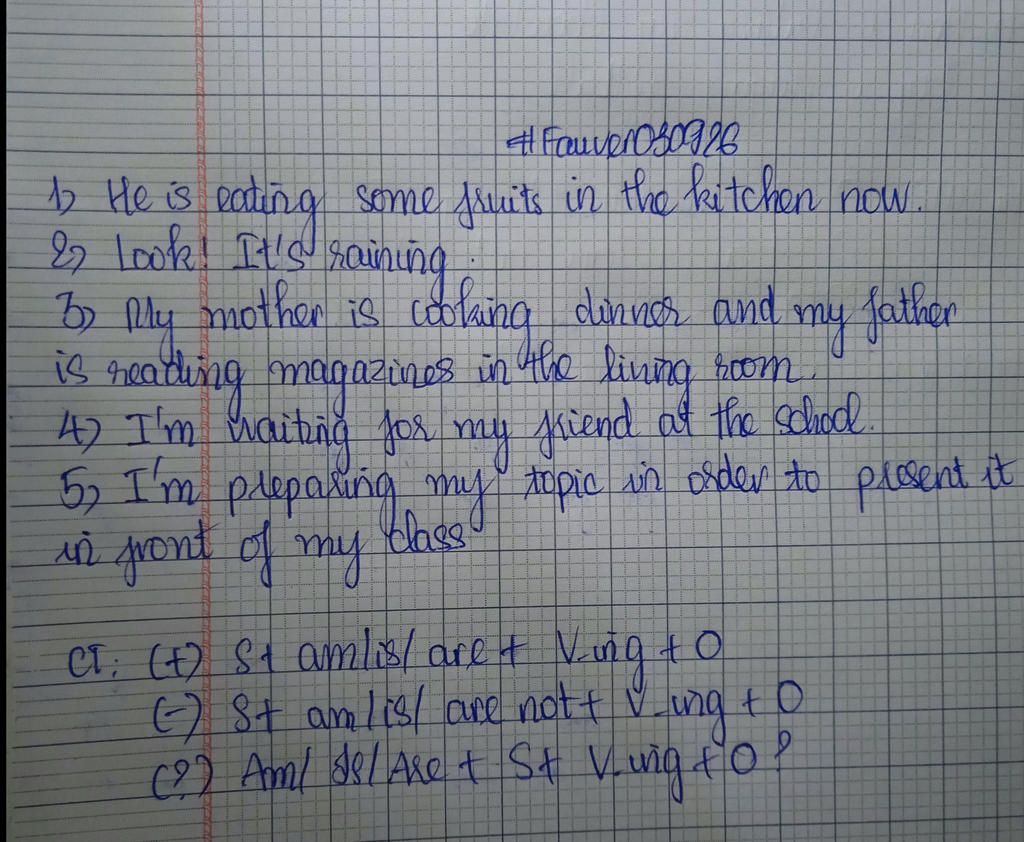 #Fauver030926
1) He is eating some fruits in the kitchen now.
2) Look! It's raining.
3) My mother is cooking dinner and my father
is reading magazines in the living room.
4) I'm waiting for my friend at the school.
5) I'm preparing my topic in order to present it
in front of my class
CT: (+) S+ am/is/ are + V-ing + O
(-) S+ am/is/ are not + V-ing + O
(?) Am/ Is/ Are + S+ V-ing + O?